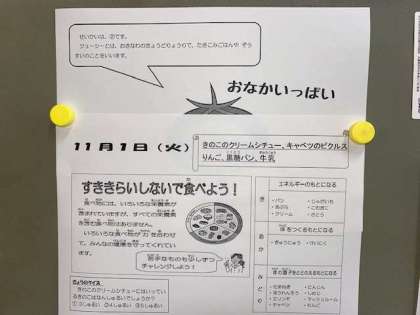 せいかいは、②です。
ジューシーとは、おきなわのきょうどりょうりで、たきこみごはんや ぞう
すいのことをいいます。
おなかいっぱい
11月1日（火）
きのこのクリームシチュー、キャベツのピクルス
りんご、黒糖パン、牛乳
すききらいしないで食べよう！
食べ物には、いろいろな栄養素が
含まれていますが、すべての栄養素
を含む食べ物はありません。
いろいろな食べ物が力を合わせ
て、みんなの健康を守ってくれてい
ます。
苦手なものも少しずつ
チャレンジしよう！
きょうのクイズ
きのこのクリームシチューにはいってい
るきのこはなんしゅるいでしょうか？
エネルギーのもとになる
き
・パン
・じゃがいも
・あぶら
・こむぎこ
・クリーム
・さとう
体をつくるもとになる
あか
・ぎゅうにゅう
・けいにく
体の調子をととのえるもとになる
みどり
・たまねぎ
・にんじん
・ほうれんそう
・しめじ
・エリンギ
・マッシュルーム
・キャベツ
・りんご